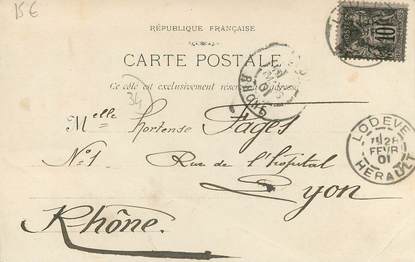 15 €
RÉPUBLIQUE FRANÇAISE
10
CARTE POSTALE
Ce côté est exclusivement réservé à l'adresse
RHONE
34
Melle Hortense Fages
LODEVE
28
FEVR
01
HERAULT
N° 1 Rue de l'hopital
Lyon
Rhône.